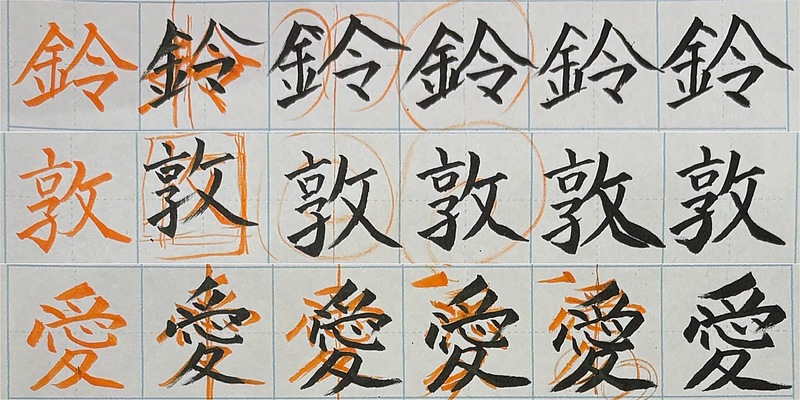 鈴鈴鈴鈴鈴鈴
敦敦敦敦敦敦
愛愛愛愛愛愛